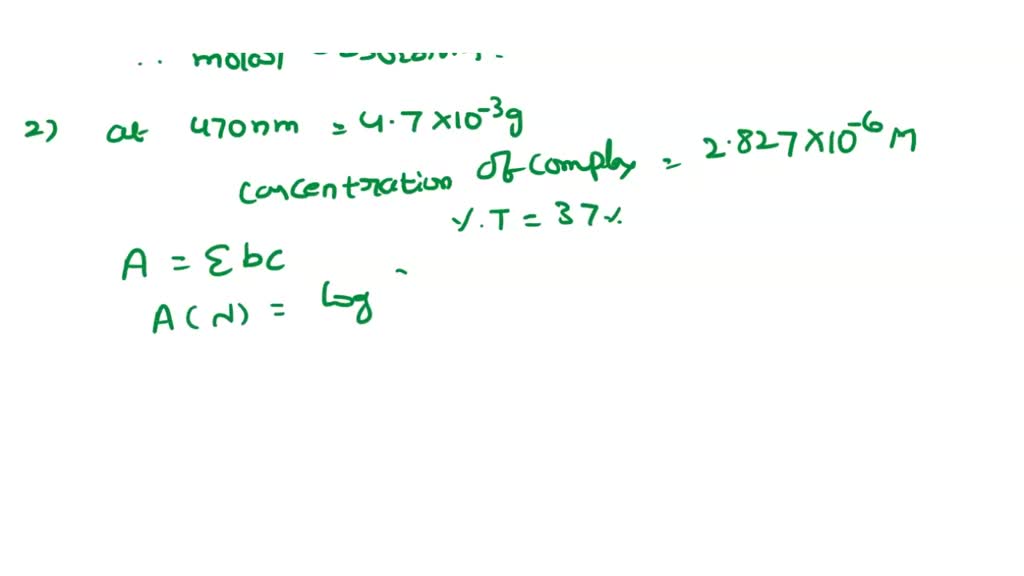 ∴ molar
2) at 470nm = 4.7×10⁻³g
concentration of complex = 2.827×10⁻⁶ M
%.T = 37%
A = Ɛbc
A(N) = log